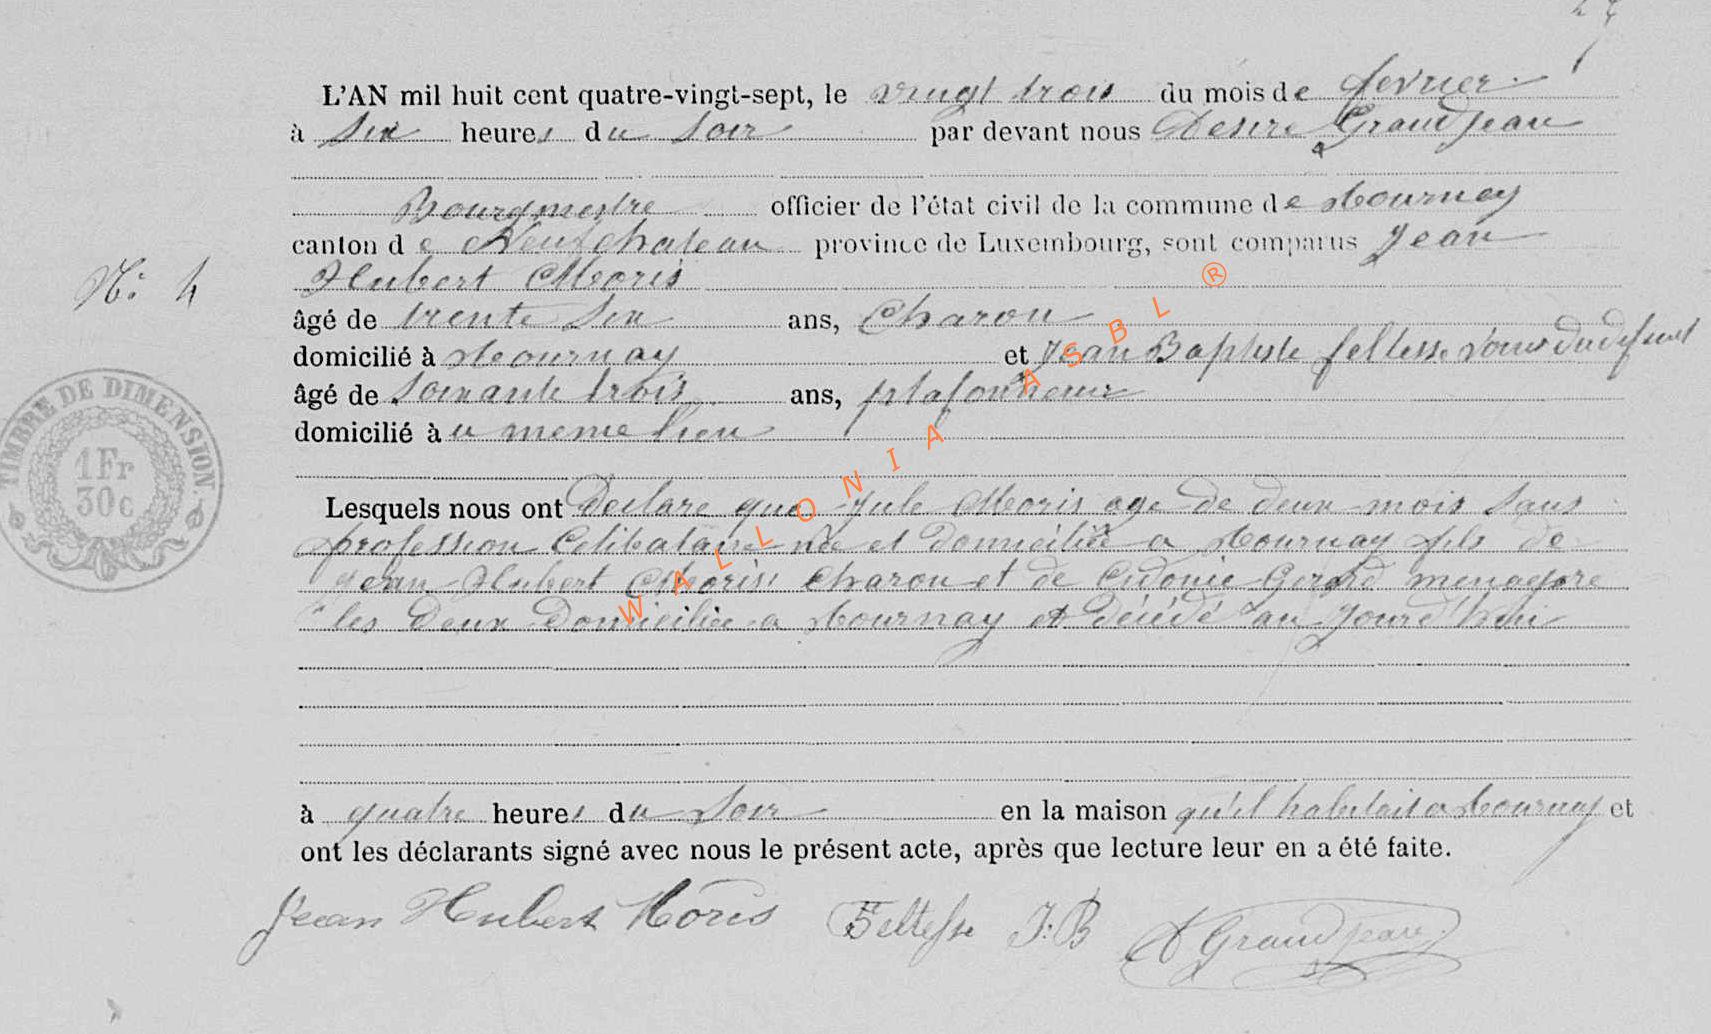 L'AN mil huit cent quatre-vingt-sept, le vingt trois du mois de fevrier
à Six heures du Soir par devant nous Desire Grandjean
Bourgmestre officier de l'état civil de la commune de tournay
canton de Neufchateau province de Luxembourg, sont comparus Jean
Nº 4
Hubert Moris
âgé de trente Six ans, Charon
domicilié à tournay et Jean Baptiste feltesse du defunt
âgé de Soixante trois ans, plafonneur
domicilié au meme lieu
TIMBRE DE DIMENSION.
1Fr
30c
Lesquels nous ont Declare que Jule Moris age de deux mois Sans
profession Celibataire née et domiciliée a tournay fils de
Jean Hubert Moris Charon et de Cidonie Gerard menagere
les deux Domiciliée a tournay et décédé au jourd'hui
à quatre heures du Soir en la maison qu'il habitait a tournay et
ont les déclarants signé avec nous le présent acte, après que lecture leur en a été faite.
Jean Hubert Moris Feltesse J:B D Grandjean
WALLONIA ASBL ®